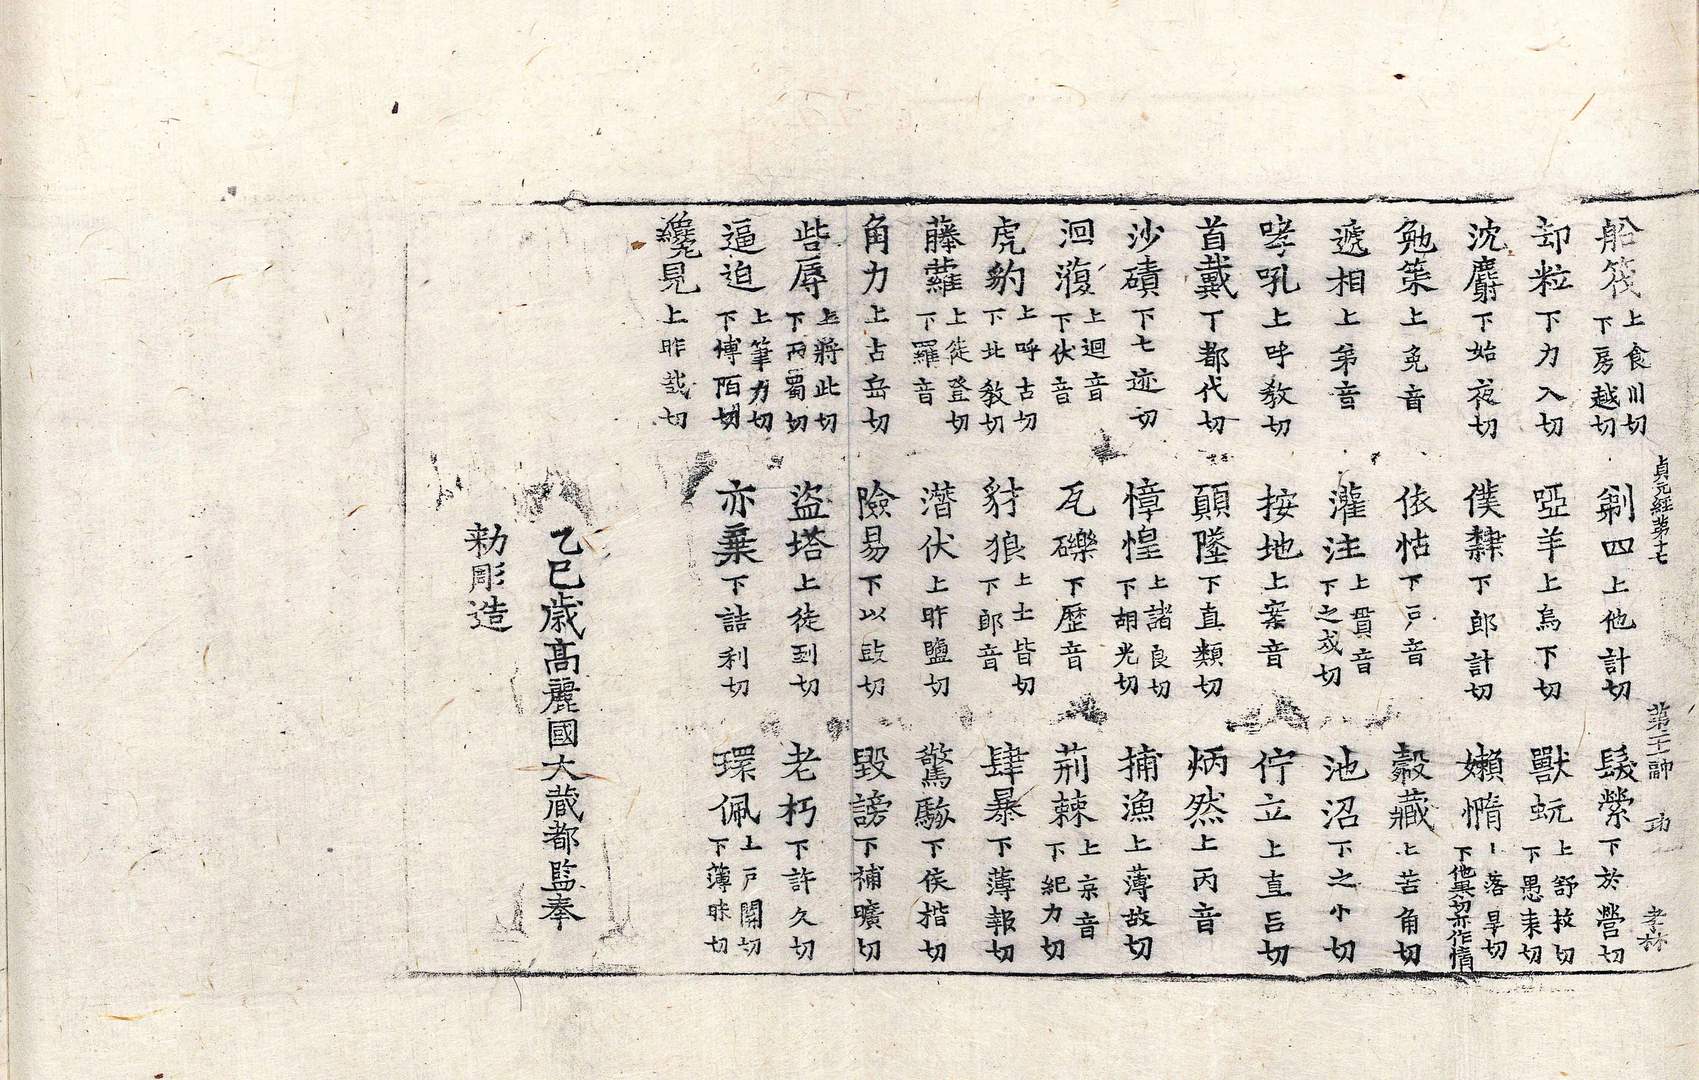 貞元經第十七 第二十二 功 孝林
船筏上食川切下房越切 剃四上他計切 髮縈下於營切
却粒下力入切 啞羊上烏下切 獸蚖上舒救切下愚表切
沈麝下始夜切 僕隸下郎計切 嬾惰上落旱切下他果切亦作惰
勉策上免音 依怙下戶音 㲉藏上苦角切
遞相上第音 灌注上貫音下之戍切 池沼下之小切
哮吼上呼教切 按地上案音 佇立上直呂切
首戴丁都代切 顚墜下直類切 炳然上丙音
沙磧下七迹切 慞惶上諸良切下胡光切 捕漁上薄故切
洄澓上迴音下伏音 瓦礫下歷音 荊棘上京音下紀力切
虎豹上呼古切下北教切 豺狼上士皆切下郎音 肆暴下薄報切
藤蘿上徒登切下羅音 潛伏上昨鹽切 驚駭下侯楷切
角力上古岳切 險易下以豉切 毀謗下補曠切
呰辱上將此切下丙蜀切 盜塔上徒到切 老朽下許久切
逼迫上筆力切下博陌切 亦棄下詰利切 環佩上戶關切下薄昧切
纔見上昨哉切
乙巳歲高麗國大藏都監奉
勅彫造